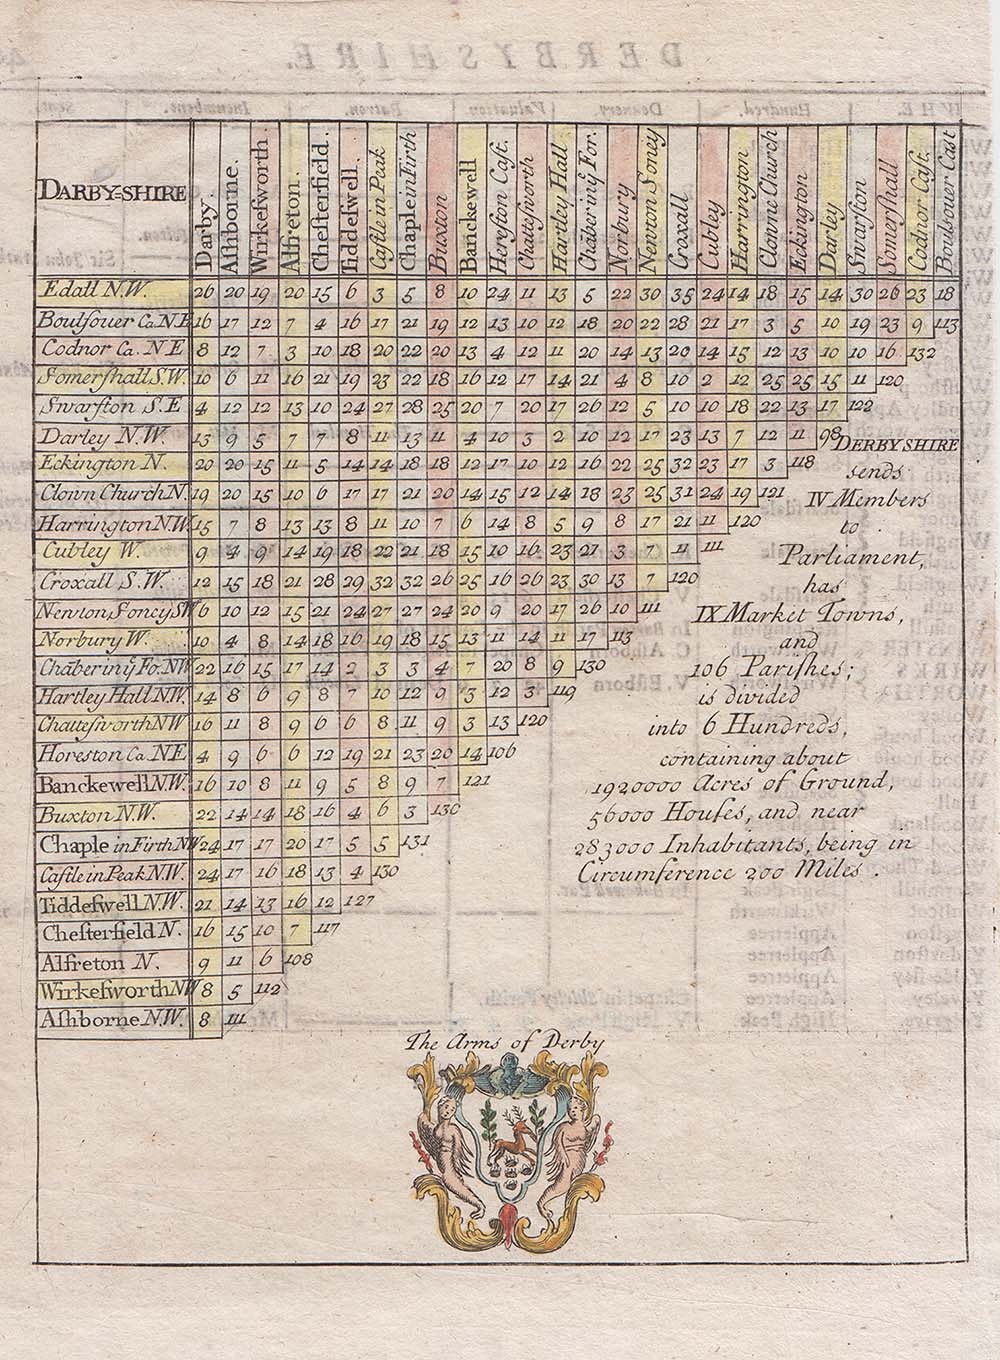 DARBY=SHIRE Darby. Aſhborne. Wirkeſworth. Alfreton. Cheſterfield. Tiddeſwell. Caſtle in Peak Chaple in Firth Buxton Banckewell Horeſtion Caſt. Chatteſworth Hartley Hall Chāberinẏ For. Norbury Newton Soney Croxall Cubley Harrington Clowne Church Eckington Darley Swarſton Somerſhall Codnor Caſt. Boulſouer Caſt
Edall N.W. 26 20 19 20 15 6 3 5 8 10 24 11 13 5 22 30 35 24 14 18 15 14 30 26 23 18
Boulſouer Ca. N E 16 17 12 7 4 16 17 21 19 12 13 10 12 18 20 22 28 21 17 3 5 10 19 23 9 113
Codnor Ca. N E 8 12 7 3 10 18 20 22 20 13 4 12 11 20 14 13 20 14 15 12 13 10 10 16 132
Somerſhall S.W. 10 6 11 16 21 19 23 22 18 16 12 17 14 21 4 8 10 2 12 25 25 15 11 120
Swarſton S.E 4 12 12 13 10 24 27 28 25 20 7 20 17 26 12 5 10 10 18 22 13 17 122
Darley N.W. 13 9 5 7 7 8 11 13 11 4 10 3 2 10 12 17 23 13 7 12 11 98
Eckington N. 20 20 15 11 5 14 14 18 18 12 17 10 12 16 22 25 32 23 17 3 118
Clown Church N. 19 20 15 10 6 17 17 21 20 14 15 12 14 18 23 25 31 24 19 121
Harrington N.W. 15 7 8 13 13 8 11 10 7 6 14 8 5 9 8 17 21 11 120
Cubley W. 9 4 9 14 19 18 22 21 18 15 10 16 23 21 3 7 11 111
Croxall S.W. 12 15 18 21 28 29 32 32 26 25 16 26 23 30 13 7 120
Newton Soney SW 6 10 12 15 21 24 27 27 24 20 9 20 17 26 10 111
Norbury W. 10 4 8 14 18 16 19 18 15 13 11 14 11 17 113
Chāberinẏ Fo. NW 22 16 15 17 14 2 3 3 4 7 20 8 9 130
Hartley Hall N.W. 14 8 6 9 8 7 10 12 9 3 12 3 119
Chatteſworth NW 16 11 8 9 6 6 8 11 9 3 13 120
Horeston Ca. N.E 4 9 6 6 12 19 21 23 20 14 106
Banckewell N.W. 16 10 8 11 9 5 8 9 7 121
Buxton N.W. 22 14 14 18 16 4 6 3 130
Chaple in Firth NW 24 17 17 20 17 5 5 131
Caſtle in Peak N.W. 24 17 16 18 13 4 130
Tiddeſwell N.W. 21 14 13 16 12 127
Cheſterfield N. 16 15 10 7 117
Alfreton N. 9 11 6 108
Wirkeſworth NW 8 5 112
Aſhborne N.W. 8 111
DERBY SHIRE
ſends
IV Members
to
Parliament,
has
IX Market Towns,
and
106 Pariſhes;
is divided
into 6 Hundreds,
containing about
1920000 Acres of Ground,
56000 Houſes, and near
283000 Inhabitants, being in
Circumference 200 Miles.
The Arms of Derby